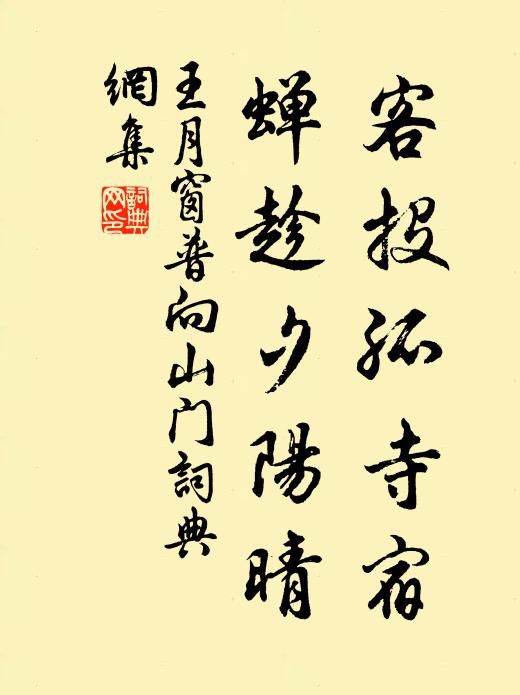 客投孤寺宿
蟬趁夕陽晴
王月窗普向山門詞典
網集
詞典
網印